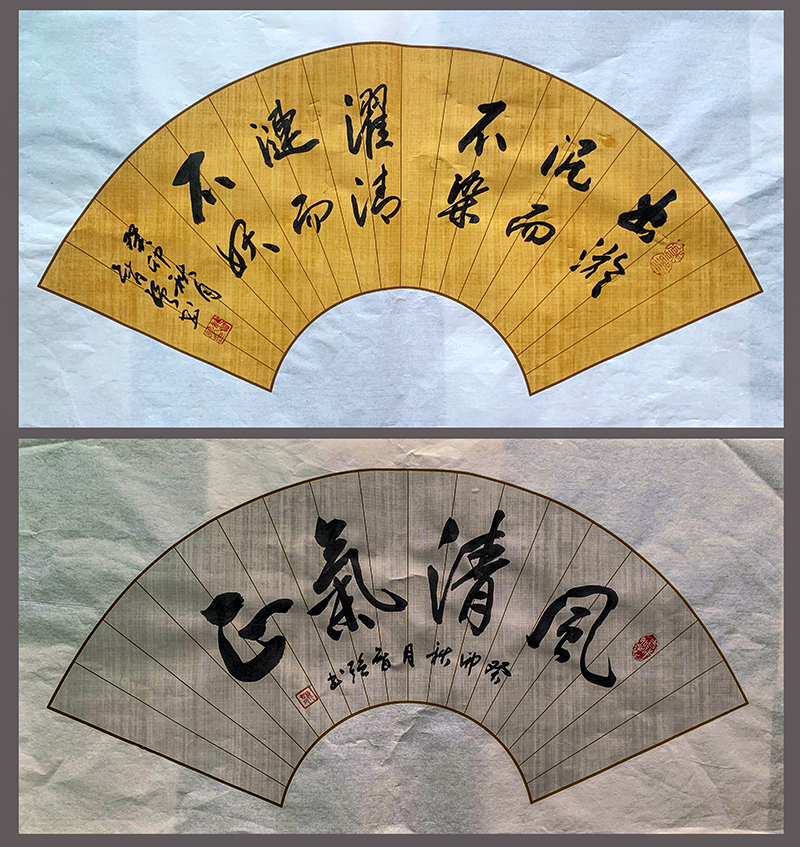 出淤
泥而
不染
濯清
漣而
不妖
癸卯秋月
書
風清氣正
癸卯秋月